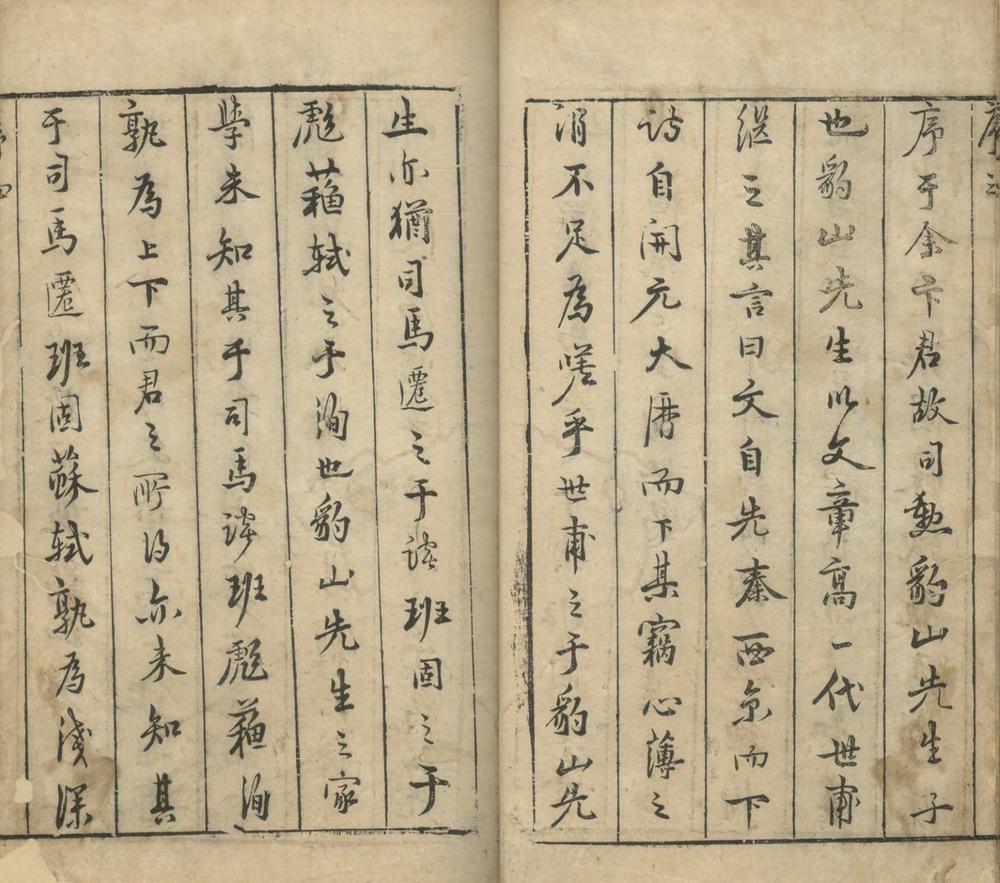 序于余卞君故司勲豹山先生子
也豹山先生以文章高一代世甫
繼之其言曰文自先秦西京而下
詩自開元大曆而下某竊心薄之
謂不足爲嗟乎世甫之于豹山先
生亦猶司馬遷之于談班固之于
彪蘓軾之于洵也豹山先生之家
學未知其于司馬談班彪蘓洵
孰爲上下而君之所得亦未知其
于司馬遷班固蘇軾孰爲淺深